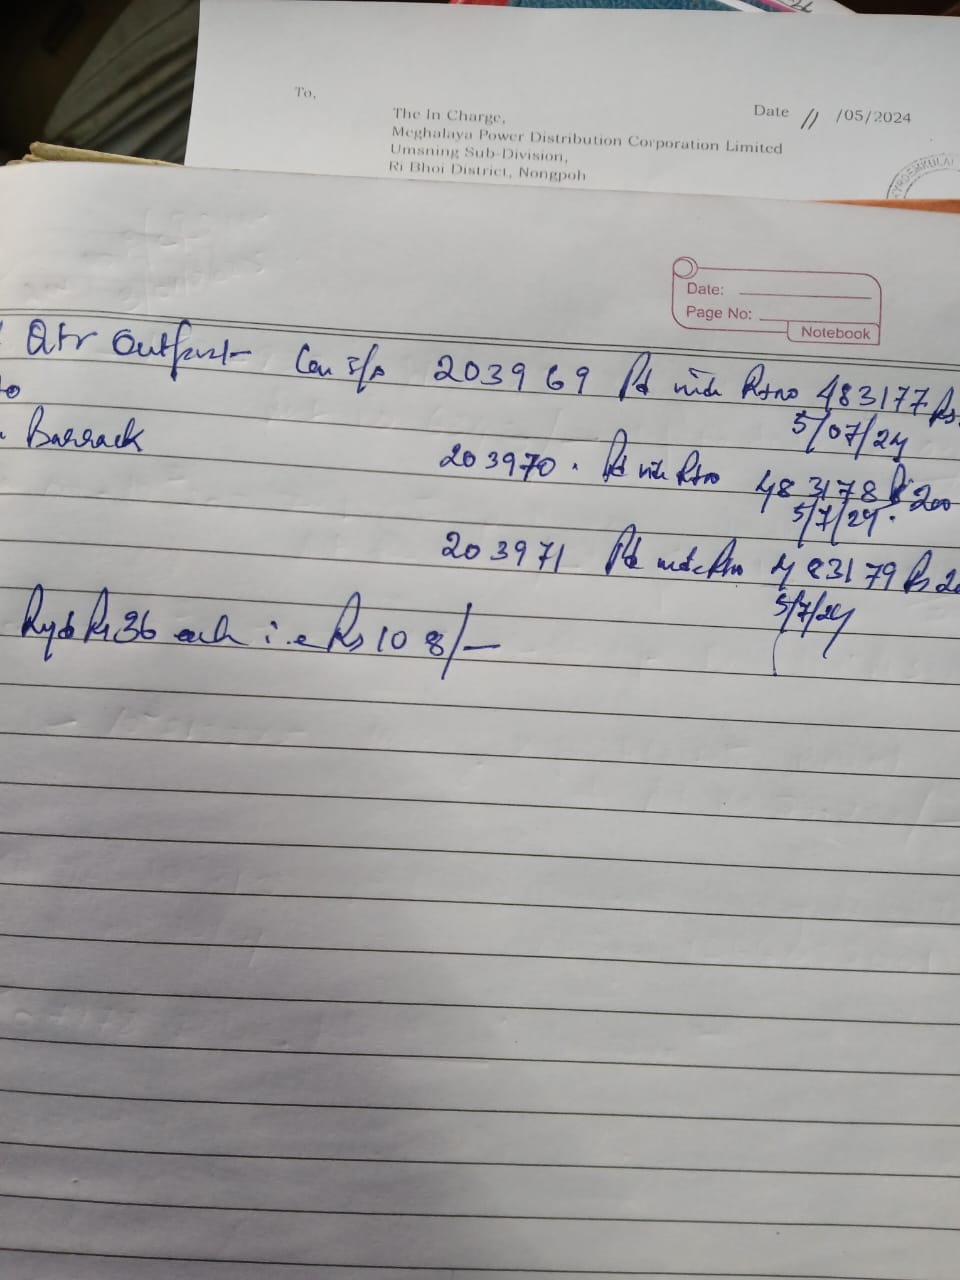 To,
Date // /05/2024
The In Charge,
Meghalaya Power Distribution Corporation Limited
Umsning Sub-Division,
Ri Bhoi District, Nongpoh
Date:
Page No:
Notebook
Qtr Outpost Con 203969 Pd vide Rtno 483177 Rs
5/07/24
Barrack
203970. Pd vide Rtno 483178 Rs 200
5/7/24.
203971 Pd vide Rtno 483179 Rs
5/7/24
Rs 36 each i.e Rs 108/-